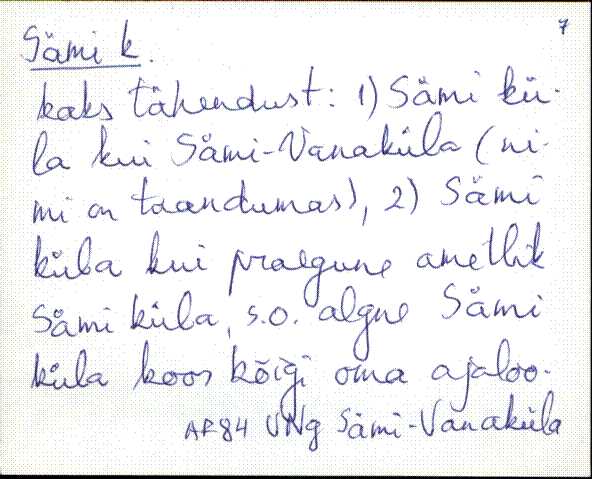 7
Sämi k.
kaks tähendust: 1) Sämi kü-
la kui Sämi-Vanaküla (ni-
mi on taandumas), 2) Sämi
küla kui praegune ametlik
Sämi küla, s.o. algne Sämi
küla koos kõigi oma ajaloo-
AR84 VNg Sämi-Vanaküla